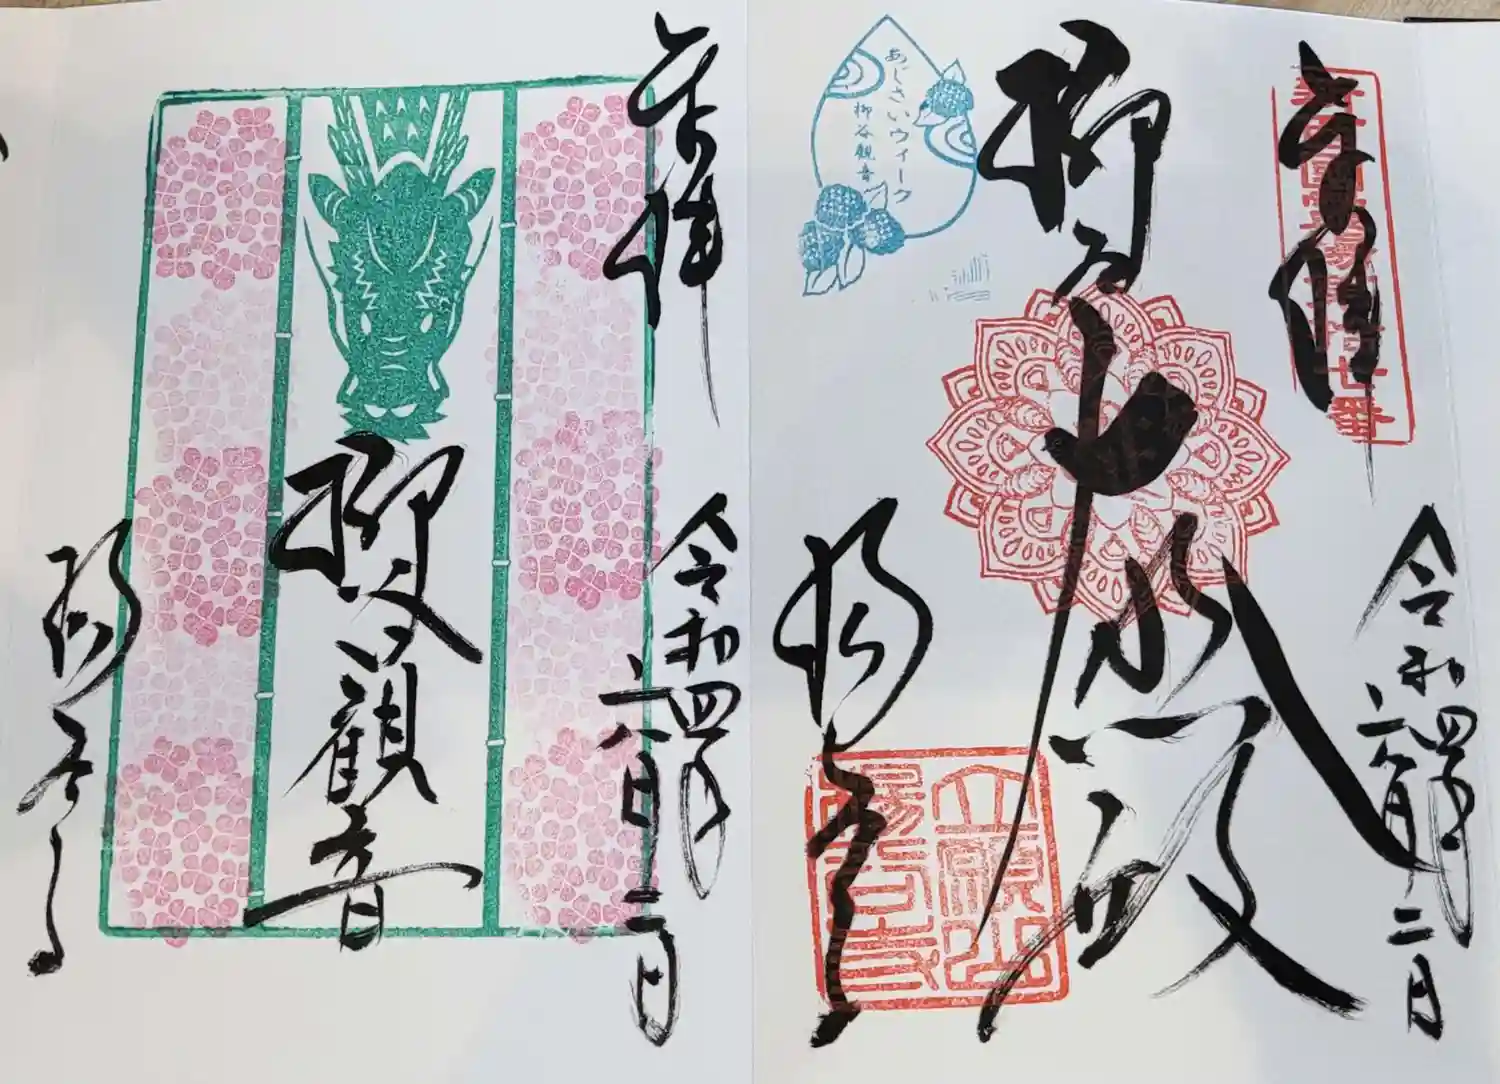 奉拝
令和四年
六月
柳谷
大悲殿
あじさいウィーク
柳谷観音
立願山
楊谷寺
楊谷寺
奉拝
令和四年
六月
柳谷観音
楊谷寺